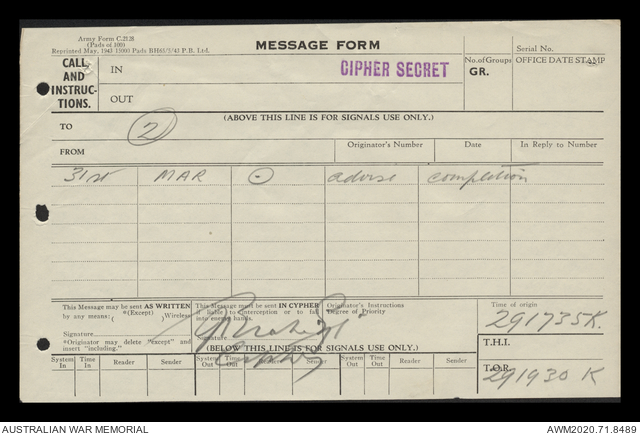 Army Form C.2128
(Pads of 100)
Reprinted May, 1943 15000 Pads BH65/5/43 P.B. Ltd.
MESSAGE FORM
Serial No.
CALL AND INSTRUC-TIONS.
IN
CIPHER SECRET
No. of Groups
GR.
OFFICE DATE STAMP
OUT
(ABOVE THIS LINE IS FOR SIGNALS USE ONLY.)
TO
2
FROM
Originator's Number
Date
In Reply to Number
31st MAR advise completion
This Message may be sent AS WRITTEN
by any means: *(Except) Wireless
Signature
*Originator may delete "except" and
insert "including."
This Message must be sent IN CYPHER
if liable to interception or to fall
into enemy hands.
Signature
Originator's Instructions
Degree of Priority
Time of origin
291735K.
T.H.I.
(BELOW THIS LINE IS FOR SIGNALS USE ONLY.)
T.O.R.
291930 K
System In
Time In
Reader
Sender
System Out
Time Out
Reader
Sender
System Out
Time Out
Reader
Sender
AUSTRALIAN WAR MEMORIAL
AWM2020.71.8489